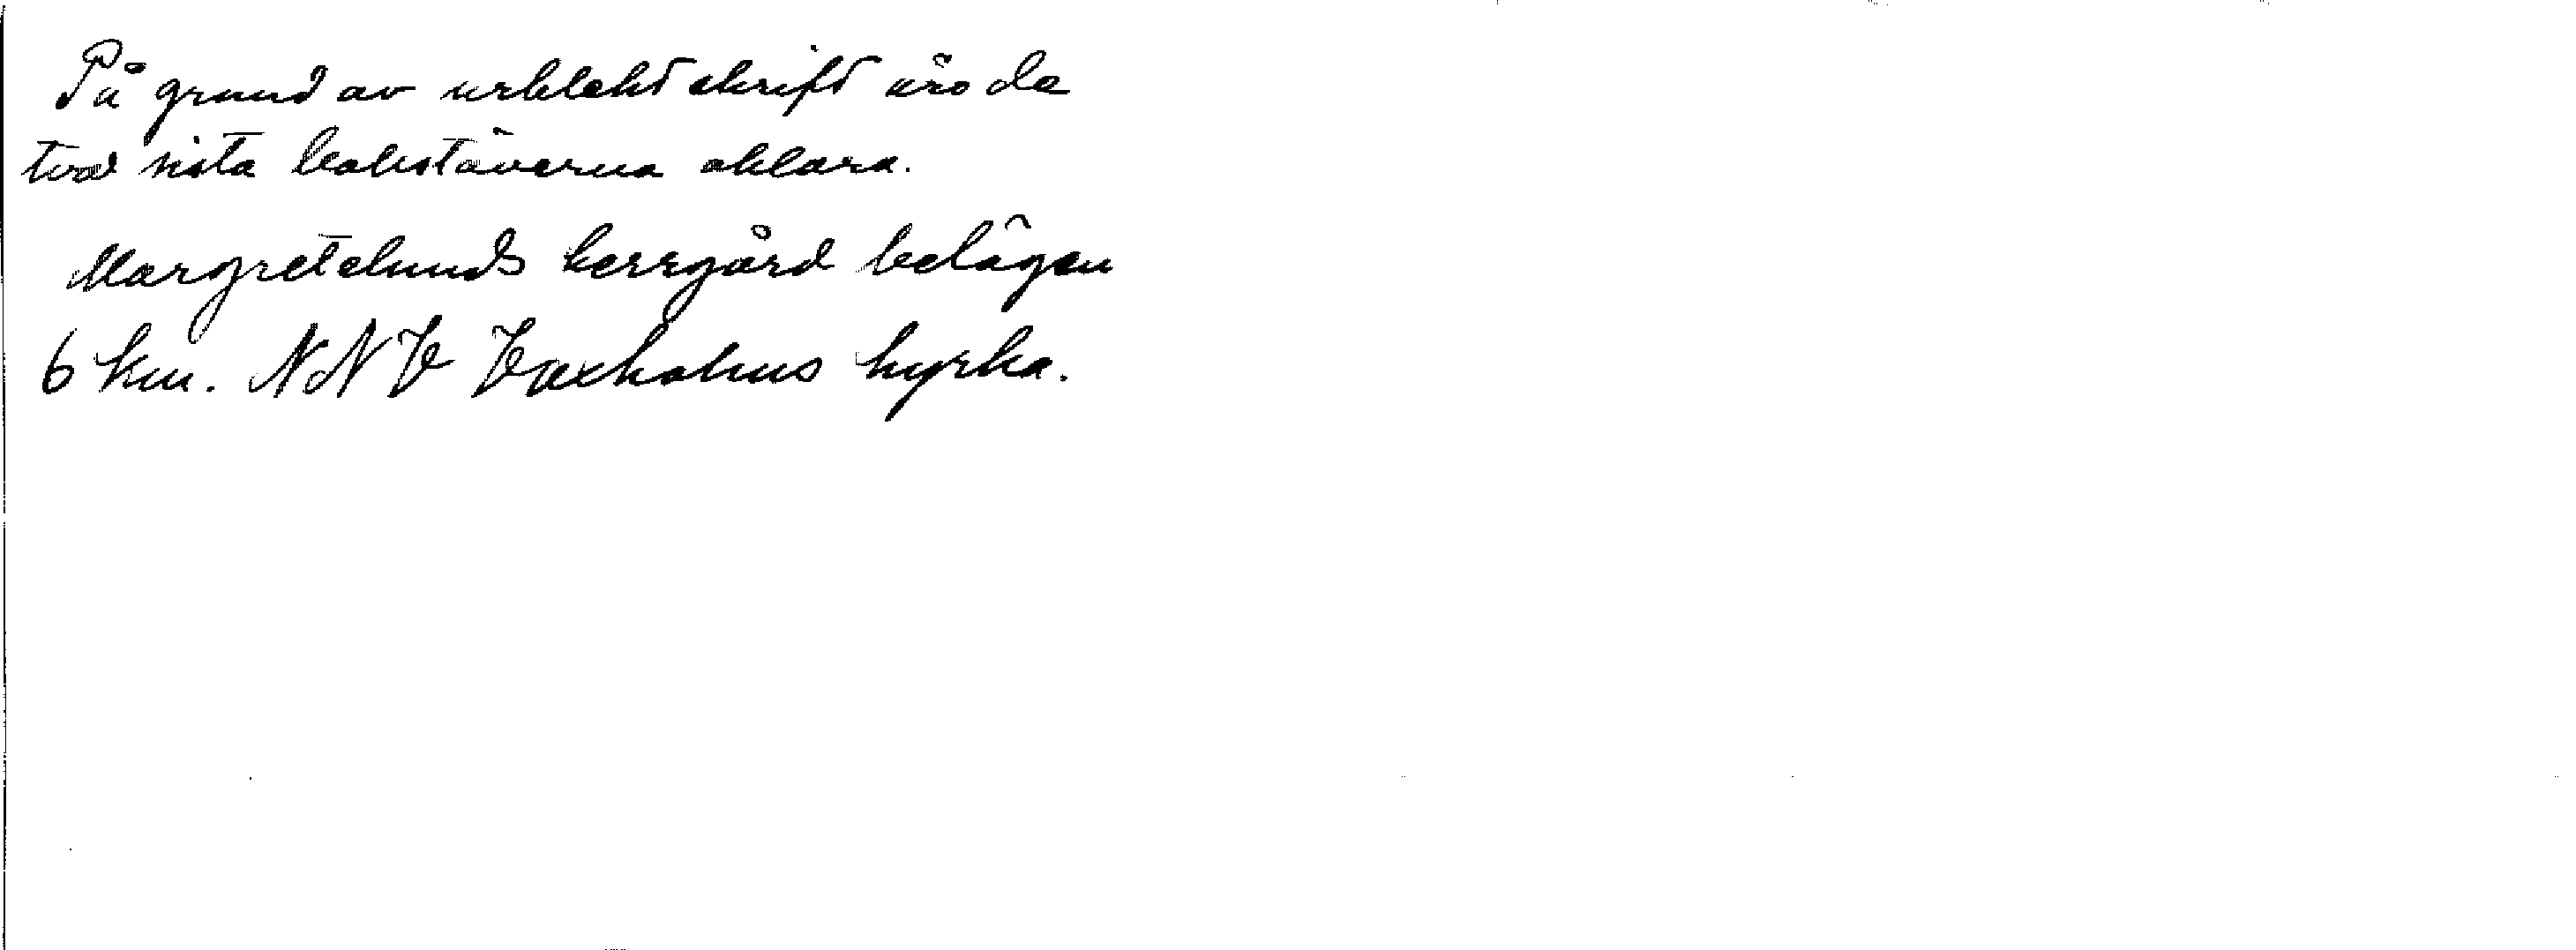 På grund av urblekt skrift äro de
två sista bokstäverna oklara.
Margretelunds herrgård belägen
6 km. NNV Vaxholms kyrka.